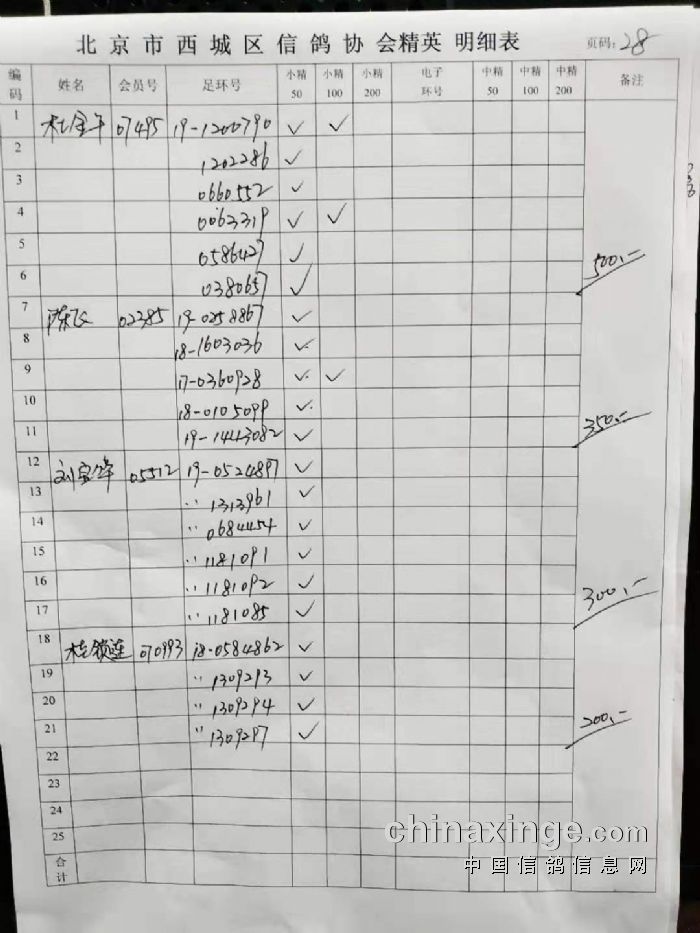 北京市西城区信鸽协会精英 明细表 页码：28
编码 姓名 会员号 足环号 小精50 小精100 小精200 电子环号 中精50 中精100 中精200 备注
1 杜金午 07495 19-1200790 ✓ ✓
2 1202286 ✓
3 0660552 ✓
4 0063319 ✓ ✓
5 0586427 ✓
6 038065 ✓ 500,-
7 陈飞 02385 19-0258867 ✓
8 18-1603036 ✓
9 17-0360928 ✓ ✓
10 18-0105099 ✓
11 19-1443082 ✓ 350,-
12 刘宝峰 05512 19-0524897 ✓
13 '' 1313961 ✓
14 '' 0684454 ✓
15 '' 1181091 ✓
16 '' 1181092 ✓
17 '' 1181085 ✓ 300,-
18 杜锁莲 070993 18-0584862 ✓
19 '' 1309293 ✓
20 '' 1309294 ✓
21 '' 1309297 ✓ 200,-
22
23
24
25
合计
chinaxinge.com
中国信鸽信息网